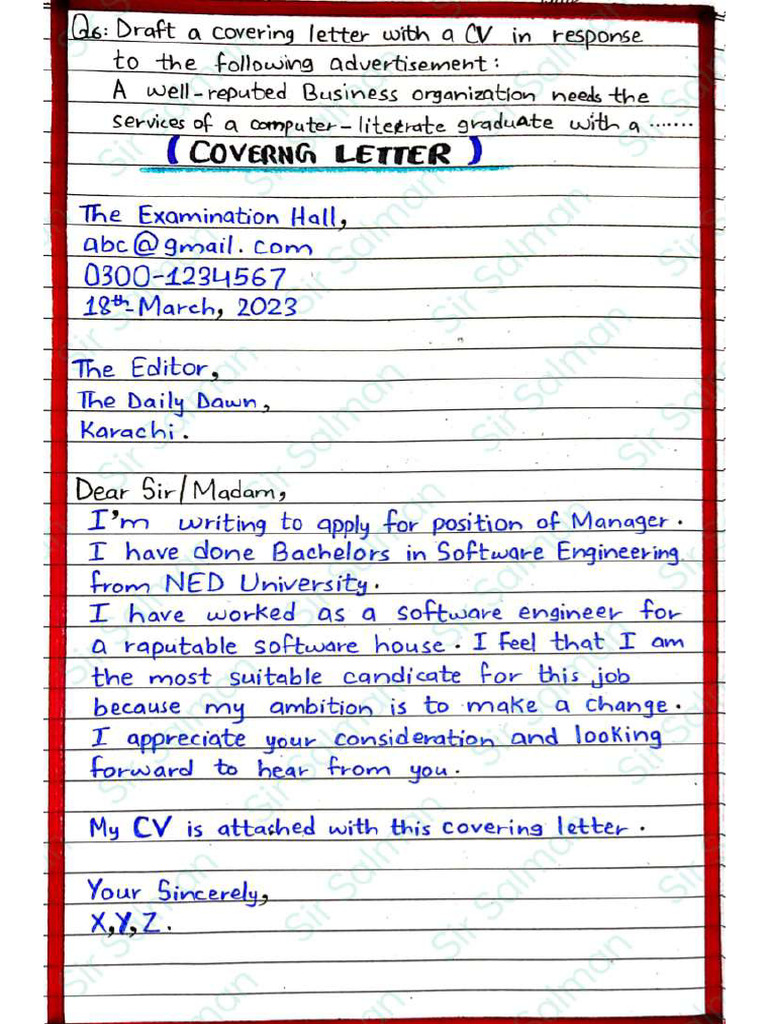 Q6: Draft a covering letter with a CV in response
to the following advertisement:
A well-reputed Business organization needs the
services of a computer-literate graduate with a .......
(COVERNG LETTER)
The Examination Hall,
abc@gmail.com
0300-1234567
18th-March, 2023
The Editor,
The Daily Dawn,
Karachi.
Dear Sir/Madam,
I'm writing to apply for position of Manager.
I have done Bachelors in Software Engineering
from NED University.
I have worked as a software engineer for
a raputable software house. I feel that I am
the most suitable candicate for this job
because my ambition is to make a change.
I appreciate your consideration and looking
forward to hear from you.
My CV is attached with this covering letter.
Your Sincerely,
X,Y,Z.
Sir Salman